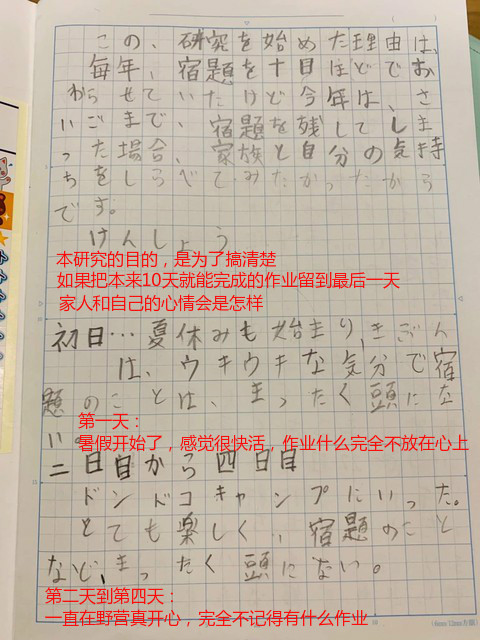 この、研究を始めた理由は、
毎年、宿題を十日ほどで、お
わらせていたけど今年は、さ
いごまで、宿題を残してしま
った場合、家族と自分の気持
ちをしらべてみたかったから
です。
けんしょう
本研究的目的，是为了搞清楚
如果把本来10天就能完成的作业留到最后一天
家人和自己的心情会是怎样
初日…夏休みも始まり、きごん
は、ウキウキな気分で宿
題のことは、まったく頭にな
い。
第一天：
暑假开始了，感觉很快活，作业什么完全不放在心上
二日目から四日目
ドンドコキャンプにいった。
とても楽しく、宿題のこと
など、まったく頭にない。
第二天到第四天：
一直在野营真开心，完全不记得有什么作业